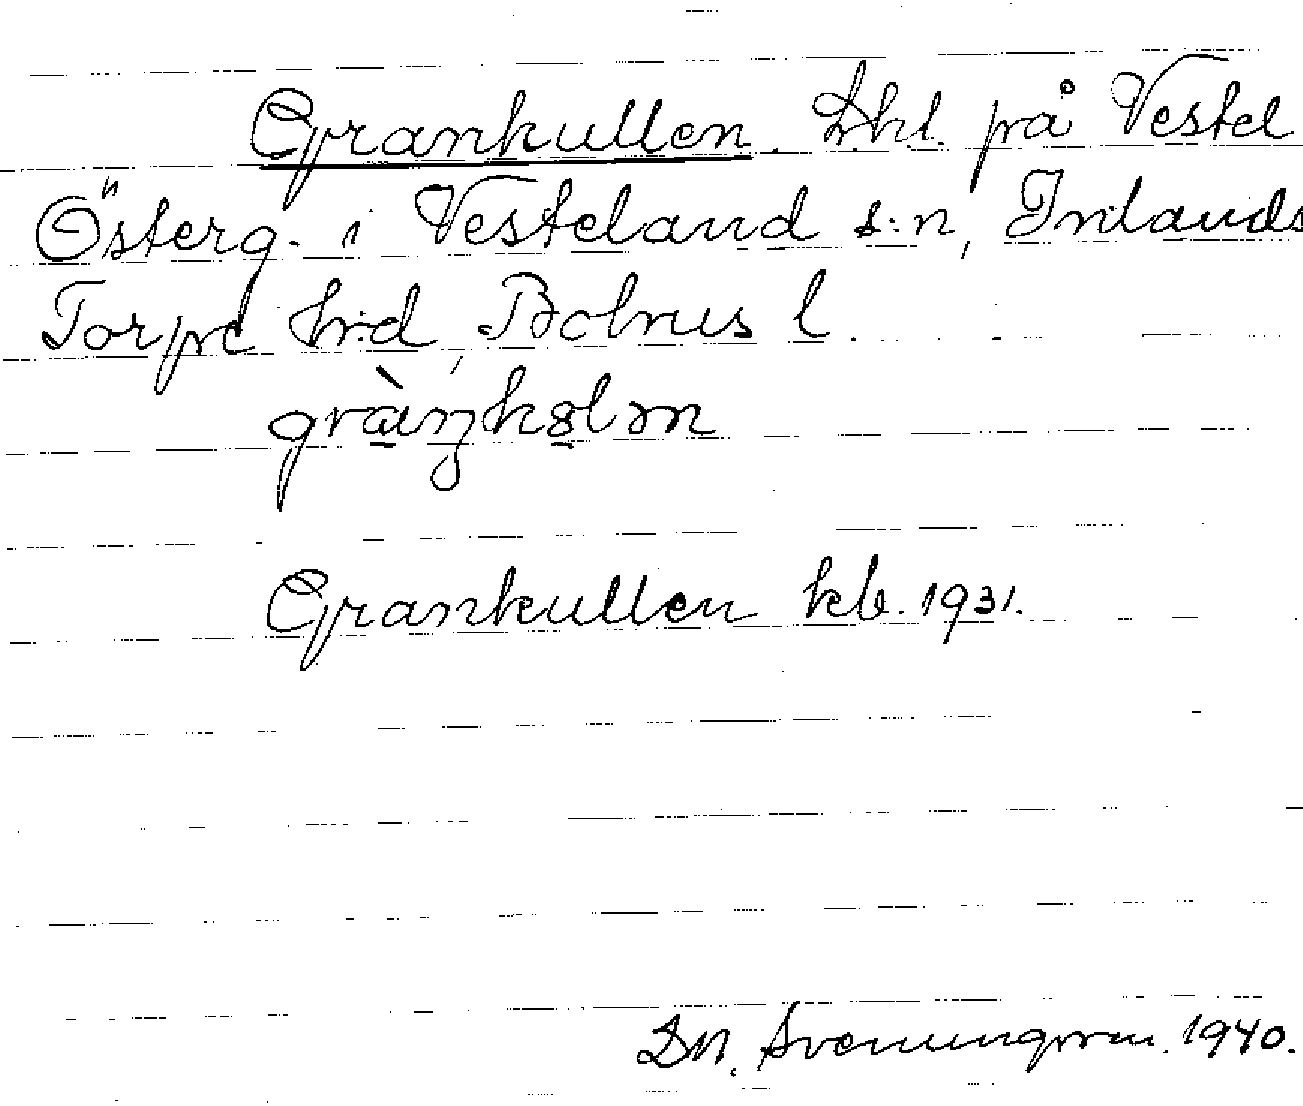 Grankullen. Lht. på Vestel
Österg. i Vesteland s:n, Inlands
Torpe h:d, Bohus l.
Grankullen kb. 1931.
Svenungsson. 1940.